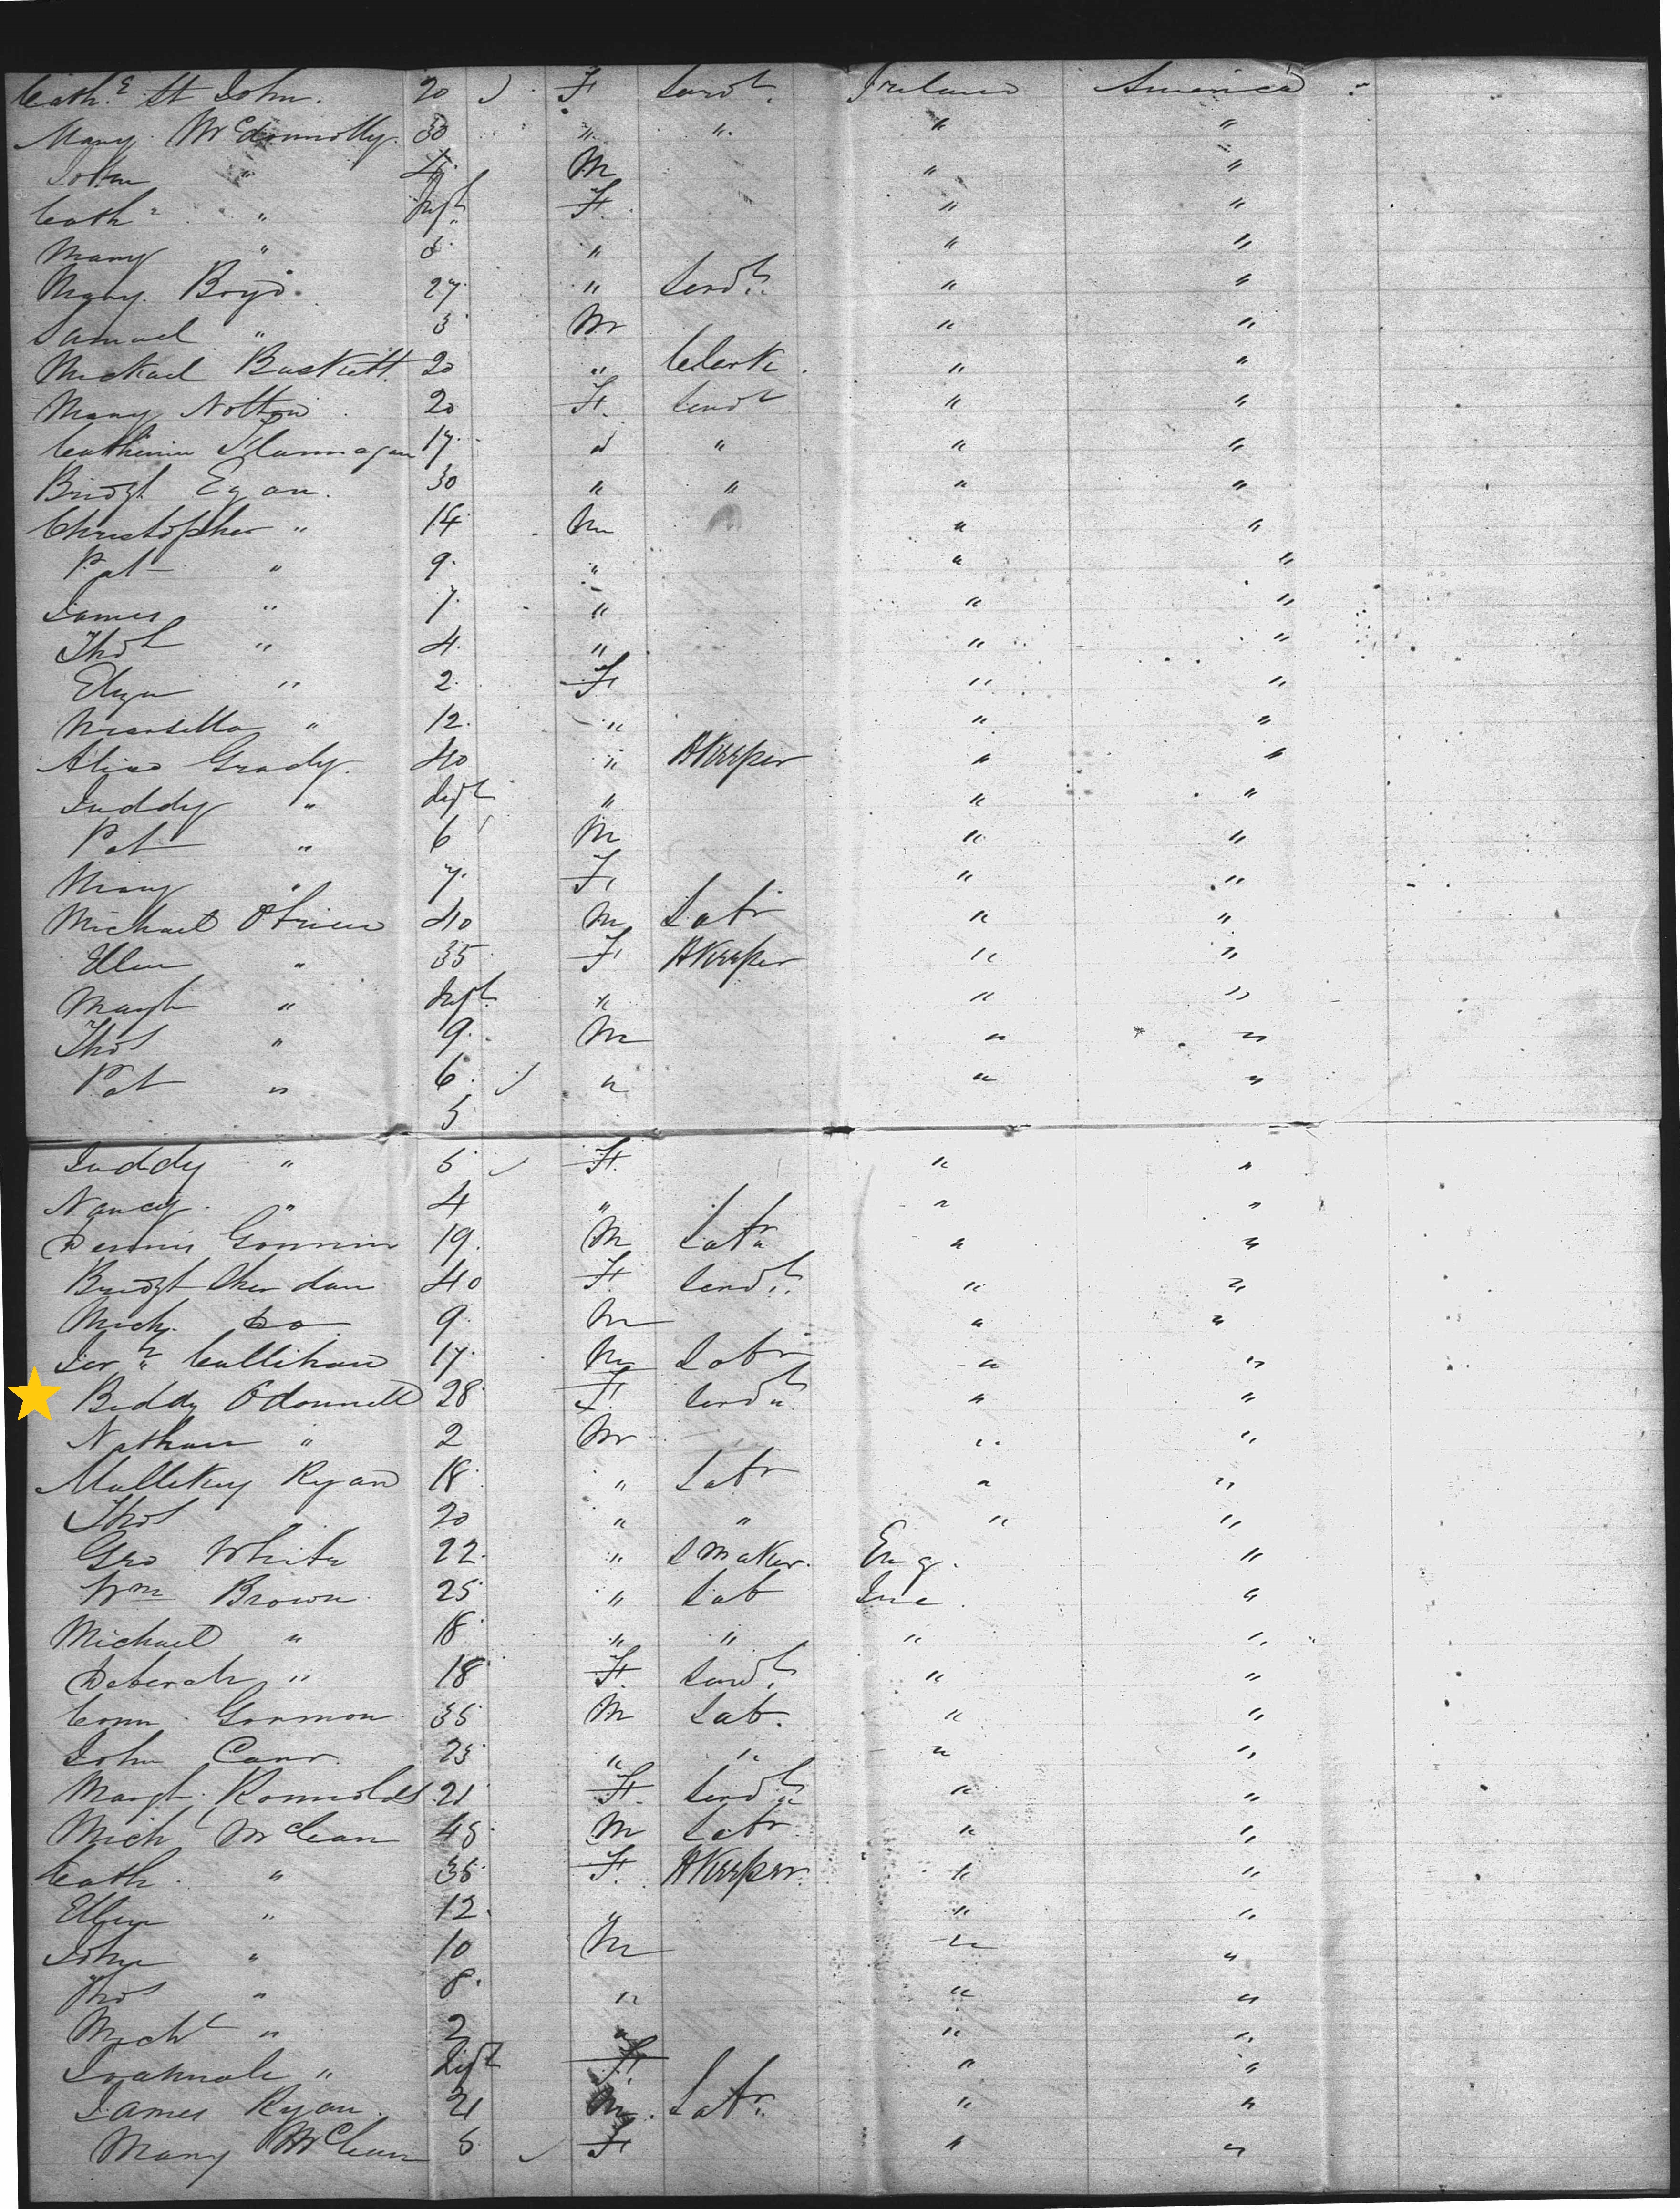 Cath.e St John. 20 F Servt. Ireland America
Mary McDonnolly. 30 " " " "
John " 4 M " "
Cath " Inft F " "
Mary " 3 " " "
Mary Boyd 27 " Servt. " "
Samuel " 3 M " "
Michael Buskett 20 " Clerk. " "
Mary 20 F Servt " "
Catherine Flannagan 17 " " " "
Bridgt Egan. 30 " " " "
Christopher " 14 M " "
Pat " 9 " " "
James " 7 " " "
Thos " 4 " " "
" 2 F " "
" 12 " " "
Alice Grady. 40 " HKeeper " "
Juddy " Inft " " "
Pat " 6 M " "
Mary " 7 F " "
Michael Obrien 40 M Labr " "
Ellen " 35 F HKeeper " "
Margt " Inft " " "
Thos " 9 M " "
Pat " 6 " " "
5
Juddy " 5 F " "
Nancy " 4 " " "
Dennis 19 M Labr " "
Bridgt Sheridan 40 F Servt. " "
Mich. Do 9 M " "
Callihan 17 M Labr " "
Biddy Odonnell 28 F Servt " "
Nathan " 2 M " "
Ryan 18 " Labr " "
Thos 20 " " " "
Geo White 22 " S Maker. Eng. "
Wm Brown 25 " Lab Ire. "
Michael " 18 " " " "
Deborah " 18 F Servt. " "
Conn Gorman 35 M Lab. " "
John Carr. 23 " " " "
Margt. 21 F Servt " "
Mich McClean 45 M Labr " "
Cath. " 35 F HKeeper " "
Ellen " 12 " " "
John " 10 M " "
Thos " 8 " " "
Michl " 2 " " "
" Inft F " "
James Ryan. 21 M Labr. " "
Mary McClean 5 F " "